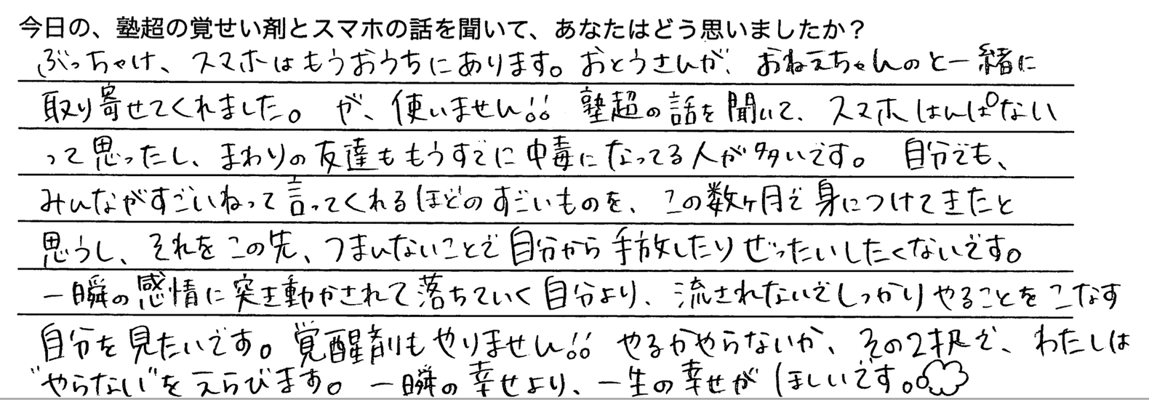 今日の、塾超の覚せい剤とスマホの話を聞いて、あなたはどう思いましたか？
ぶっちゃけ、スマホはもうおうちにあります。おとうさんが、おねえちゃんのと一緒に
取り寄せてくれました。が、使いません!! 塾超の話を聞いて、スマホはんぱない
って思ったし、まわりの友達ももうすでに中毒になってる人が多いです。 自分でも、
みんながすごいねって言ってくれるほどのすごいものを、この数ヶ月で身につけてきたと
思うし、それをこの先、つまんないことで自分から手放したりぜったいしたくないです。
一瞬の感情に突き動かされて落ちていく自分より、流されないでしっかりやることをこなす
自分を見たいです。覚醒剤もやりません!! やるかやらないか、その2択で、わたしは
"やらない"をえらびます。一瞬の幸せより、一生の幸せがほしいです。